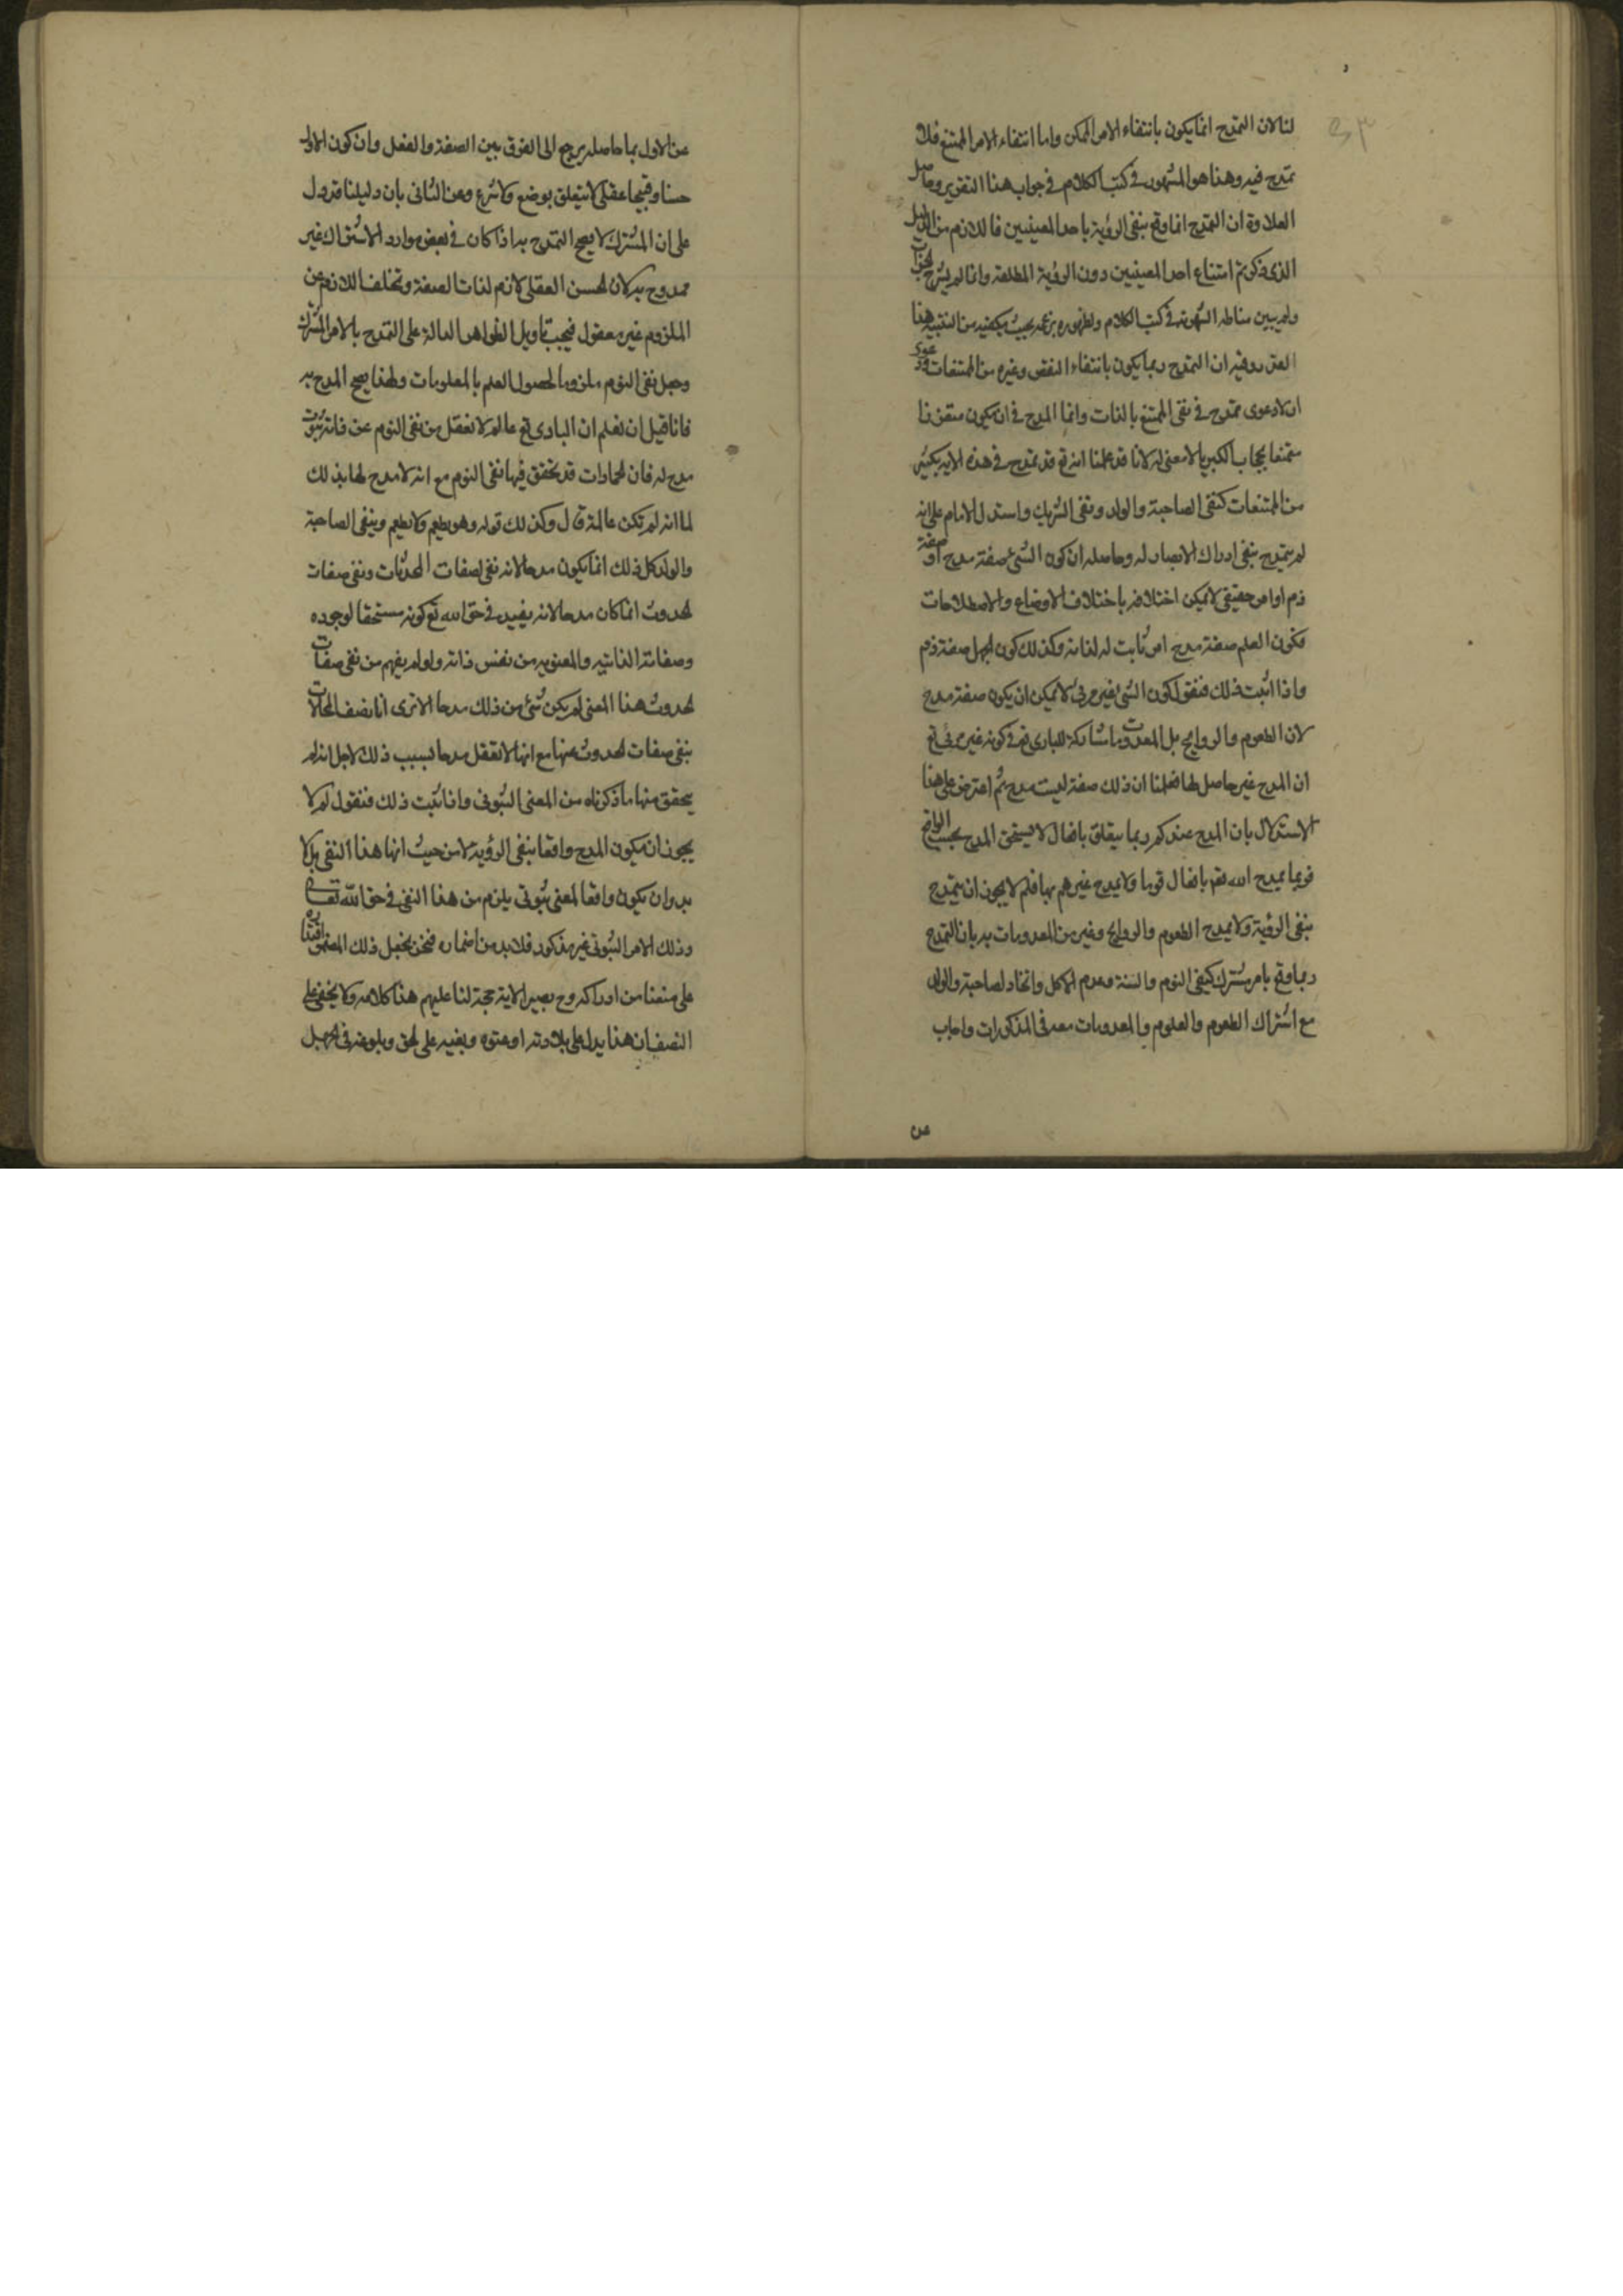 لنا لان التمدح انما يكون بانتفاء الامر الممكن واما انتفاء الامر الممتنع فلا
تمدح فيه وهذا هو المشهور في كتب الكلام في جواب هذا التقرير وحاصل
العلاوة ان التمدح انما وقع بنفى الرؤية باحد المعنيين فاللازم من الدليل
الذى ذكرتم امتناع احد المعنيين دون الرؤية المطلقة وانما لم يشرح الجواب
ولم يبين مناطه لشهرته في كتب الكلام ولظهوره بحيث يكفيه من التنبيه هذا
القدر وفيه ان التمدح ربما يكون بانتفاء النقص وغيره من الممتنعات ودعوى
ان لا دعوى تمدح في نفى الممتنع بالذات وانما المدح في ان يكون متعززا
متمنعا بحجاب الكبرياء لا معنى له لانا قد علمنا انه تع قد تمدح في هذه الاية بكثير
من الممتنعات كنفى الصاحبة والولد ونفى الشريك واستدل الامام على انه
لم يتمدح بنفى ادراك الابصار له وحاصله ان كون الشئ صفة مدح او صفة
ذم او امر حقيقى لا يمكن اختلافه باختلاف الاوضاع والاصطلاحات
فكون العلم صفة مدح امر ثابت له لذاته وكذلك كون الجهل صفة ذم
واذا اثبت ذلك فنقول كون الشئ غير مرئى لا يمكن ان يكون صفة مدح
لان الطعوم والروايح بل المعدومات مشاركة للبارى تع في كونه غير مرئى تع
ان المدح غير حاصل لها فعلمنا ان ذلك صفة ليست مدح ثم اعترض على هذا
الاستدلال بان المدح عندكم ربما يتعلق بافعال لا يستحق المدح بحسب الواقع
فربما يمدح الله تعم بافعال قوما ولا يمدح غيرهم بها فلم لا يجوز ان يتمدح
بنفى الرؤية ولا يمدح الطعوم والروايح وغير من المعدومات به بان التمدح
ربما وقع بامر مشترك كنفى النوم والسنة وعدم الاكل واتخاد الصاحبة والولد
مع اشتراك الطعوم والعلوم والمعدومات معه في المذكورات واجاب
عن
عن الاول بما حاصله يرجع الى الفرق بين الصفة والفعل وان كون الاول
حسنا وقبيحا عقلى لا يتعلق بوضع ولا شرع وعن الثانى بان دليلنا قد دل
على ان المشترك لا يصح التمدح به اذا كان في بعض موارد الاشتراك غير
ممدوح به لان الحسن العقلى لازم لذات الصفة وتخلف اللازم عن
الملزوم غير معقول فيجب تاويل الظواهر الدالة على التمدح بالامر المشترك
وجعل نفى النوم ملزوما لحصول العلم بالمعلومات ولهذا يصح المدح به
فانا قيل ان نعلم ان البارى تع عالم لا نعقل من نفى النوم عن ذاته ثبوت
مدح له فان الجمادات قد تحقق فيها نفى النوم مع انه لا مدح لها بذلك
لما انه لم تكن عالمة قال وكذلك قوله وهو يطعم ولا يطعم وينفى الصاحبة
والولد كل ذلك انما يكون مدحا لانه نفى لصفات المحدثات ونفى صفات
الحدوث انما كان مدحا لانه يفيد في حق الله تع كونه مستحقا لوجوده
وصفاته الذاتيه والمعنويه من نفس ذاته ولو لم يفهم من نفى صفات
الحدوث هذا المعنى لم يكن شئ من ذلك مدحا الا ترى انا نصف المحالات
بنفى صفات الحدوث عنها مع انها لا تعقل مدحا بسبب ذلك لاجل انه لم
يتحقق منها ما ذكرناه من المعنى الثبوتى واذا ثبت ذلك فنقول لم لا
يجوز ان يكون المدح واقعا بنفى الرؤية لا من حيث انها هذا النفى بل لا
بد وان يكون واقعا لمعنى ثبوتى يلزم من هذا النفى في حق الله تعالى
وذلك الامر الثبوتى غير مذكور فلا بد من اضماره فنحن نجعل ذلك المضمر اقتداره
على منعنا من ادراكه وح يصير الاية حجة لنا عليهم هذا كلامه ولا يخفى على
المنصف ان هذا يدل على بلادته او عتوه وبغيه على الحق وبلوغه في الجهل